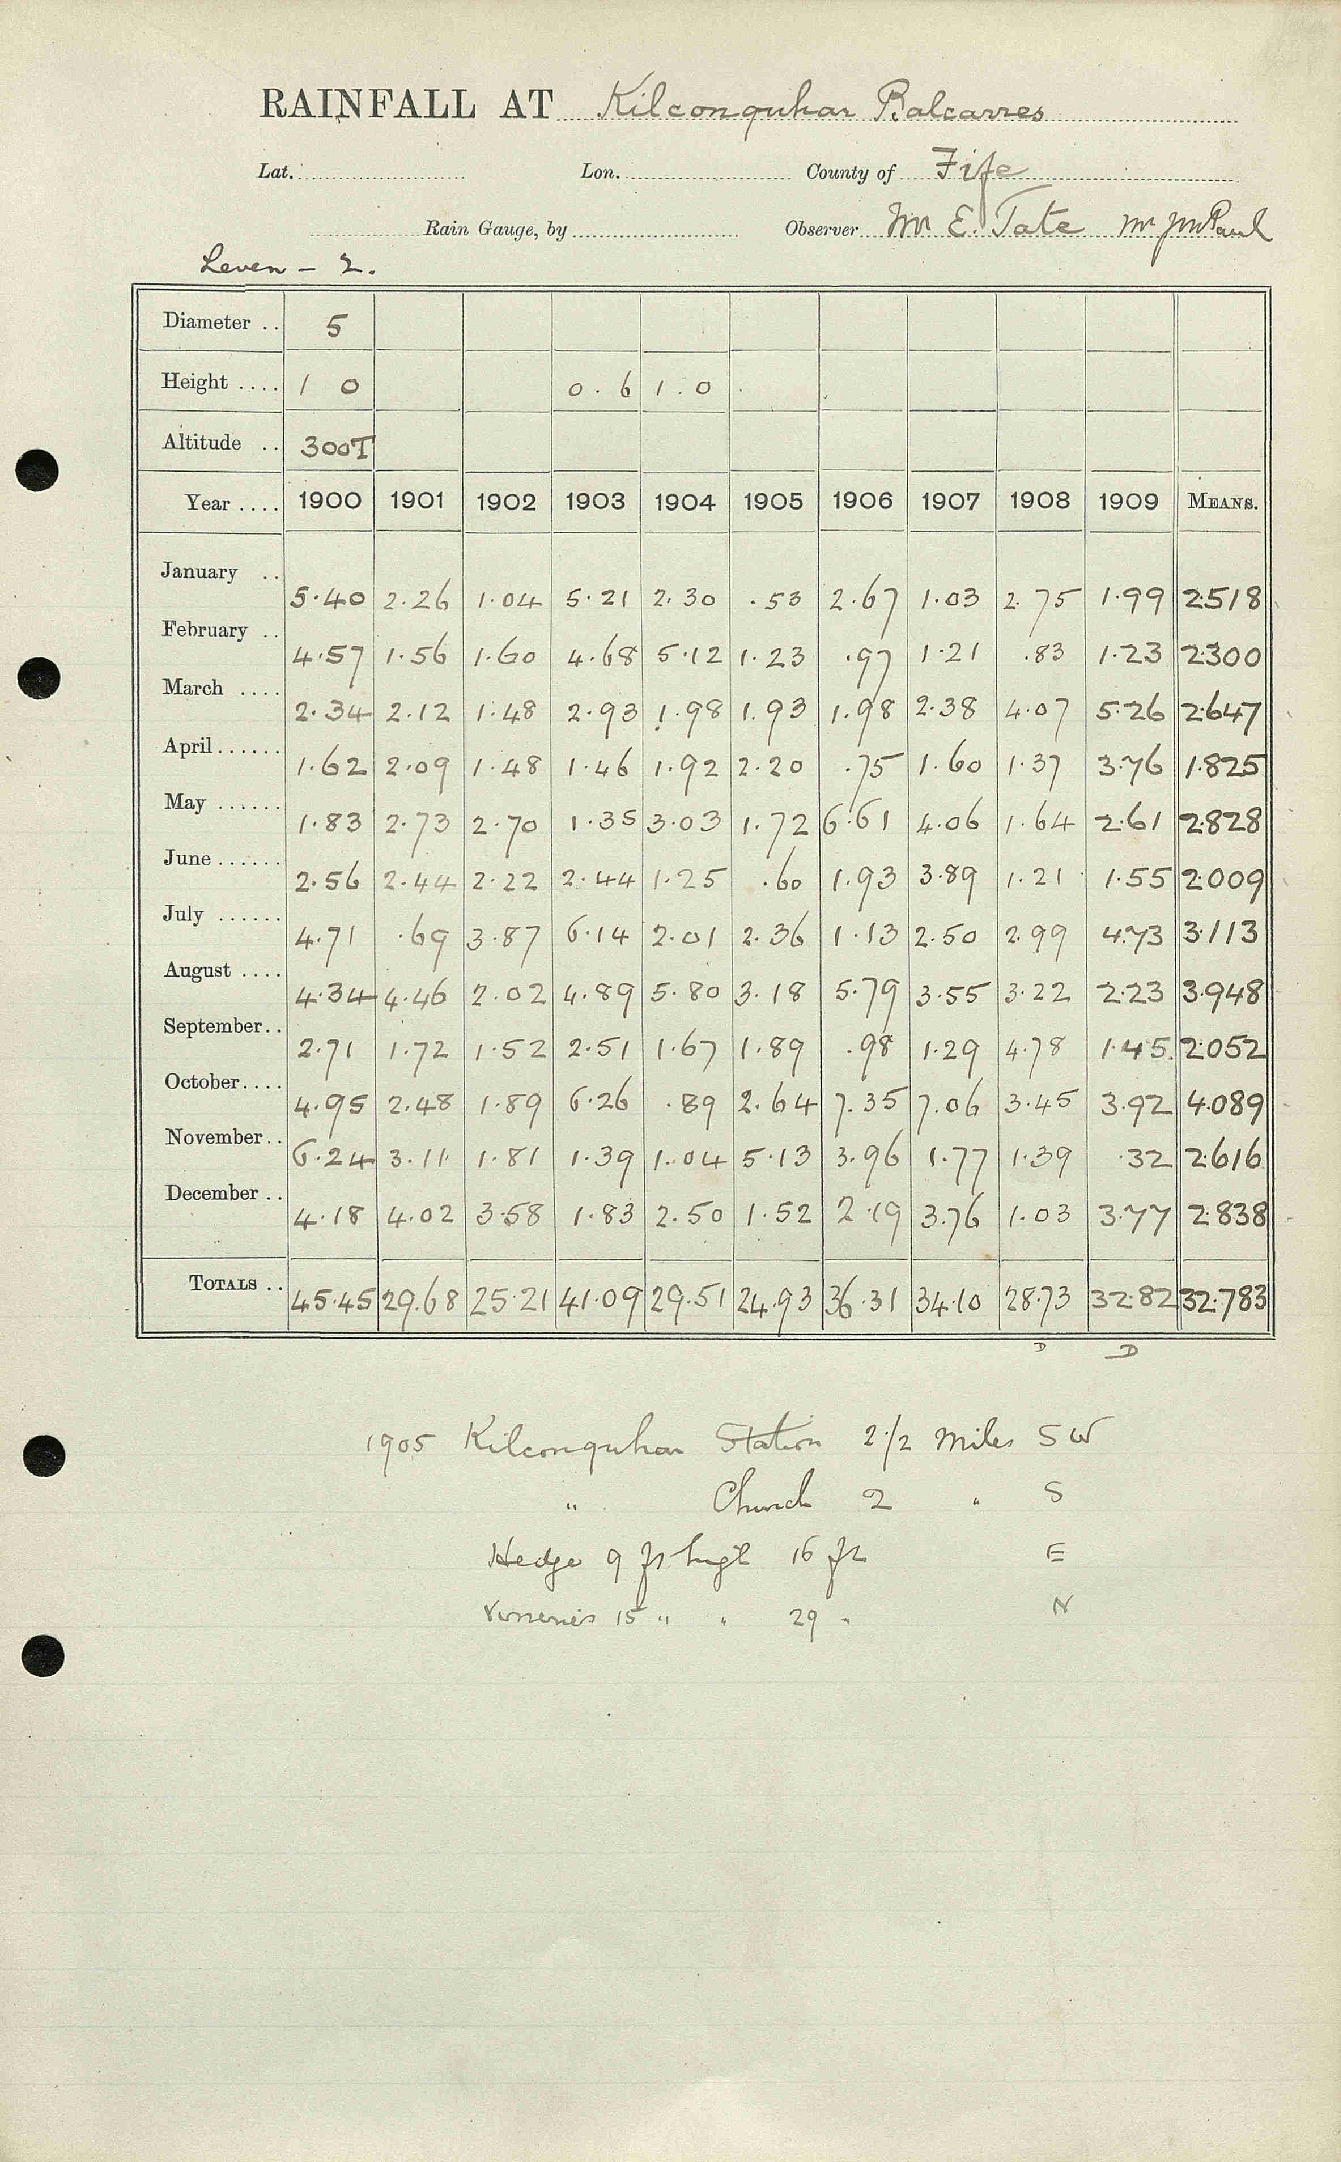 RAINFALL AT Kilconquhar Balcarres
Lat. Lon. County of Fife
Rain Gauge, by Observer Mr E. Tate Mr J M Paul
Leven - 2.
Diameter .. 5
Height .... 1 0 0.6 1.0
Altitude .. 300T
Year .... 1900 1901 1902 1903 1904 1905 1906 1907 1908 1909 MEANS.
January .. 5.40 2.26 1.04 5.21 2.30 .53 2.67 1.03 2.75 1.99 2.518
February .. 4.57 1.56 1.60 4.68 5.12 1.23 .97 1.21 .83 1.23 2.300
March .... 2.34 2.12 1.48 2.93 1.98 1.93 1.98 2.38 4.07 5.26 2.647
April ...... 1.62 2.09 1.48 1.46 1.92 2.20 .75 1.60 1.37 3.76 1.825
May ...... 1.83 2.73 2.70 1.35 3.03 1.72 6.61 4.06 1.64 2.61 2.828
June ...... 2.56 2.44 2.22 2.44 1.25 .60 1.93 3.89 1.21 1.55 2.009
July ...... 4.71 .69 3.87 6.14 2.01 2.36 1.13 2.50 2.99 4.73 3.113
August .... 4.34 4.46 2.02 4.89 5.80 3.18 5.79 3.55 3.22 2.23 3.948
September .. 2.71 1.72 1.52 2.51 1.67 1.89 .98 1.29 4.78 1.45 2.052
October .... 4.95 2.48 1.89 6.26 .89 2.64 7.35 7.06 3.45 3.92 4.089
November .. 6.24 3.11 1.81 1.39 1.04 5.13 3.96 1.77 1.39 .32 2.616
December .. 4.18 4.02 3.58 1.83 2.50 1.52 2.19 3.76 1.03 3.77 2.838
TOTALS .. 45.45 29.68 25.21 41.09 29.51 24.93 36.31 34.10 28.73 32.82 32.783
D D
1905 Kilconquhar Station 2 1/2 Miles SW
" Church 2 " S
Hedge 9 ft high 16 ft E
15 " " 29 " N